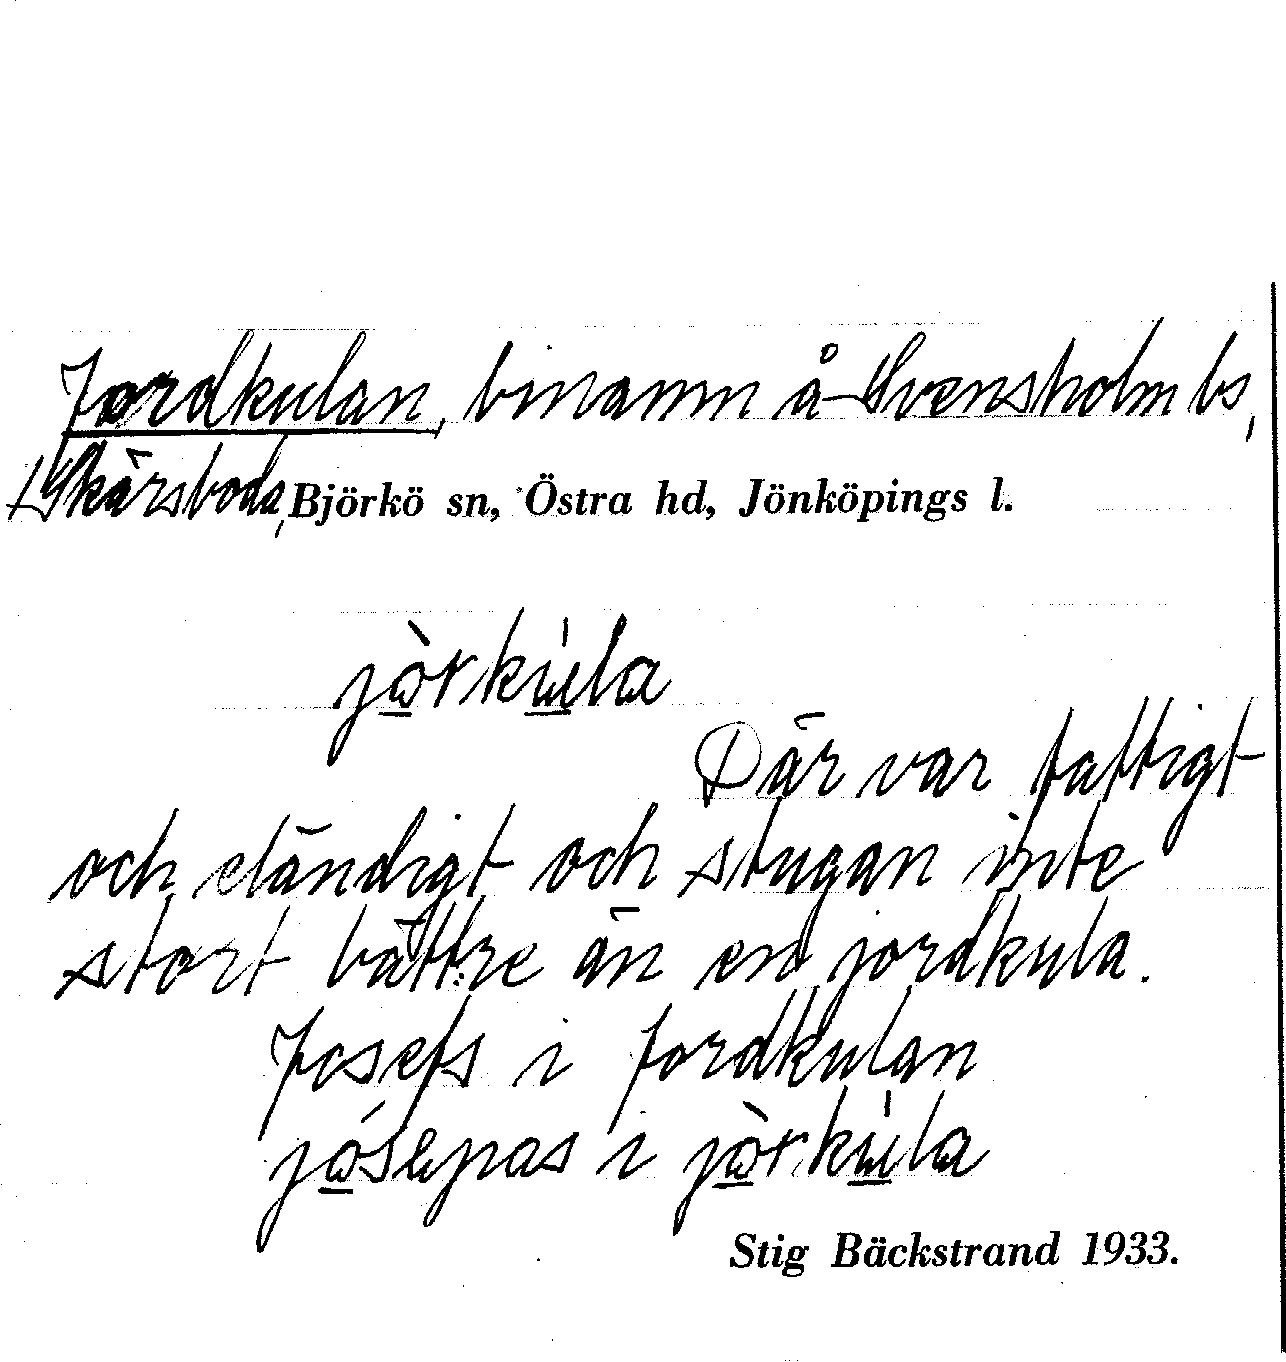 Jordkulan, binamn å Svensholm bs,
Skärsboda, Björkö sn, Östra hd, Jönköpings l.
jòrkùla
Där var fattigt
och eländigt och stugan inte
stort bättre än en jordkula.
Josefs i Jordkulan
i jòrkùla
Stig Bäckstrand 1933.